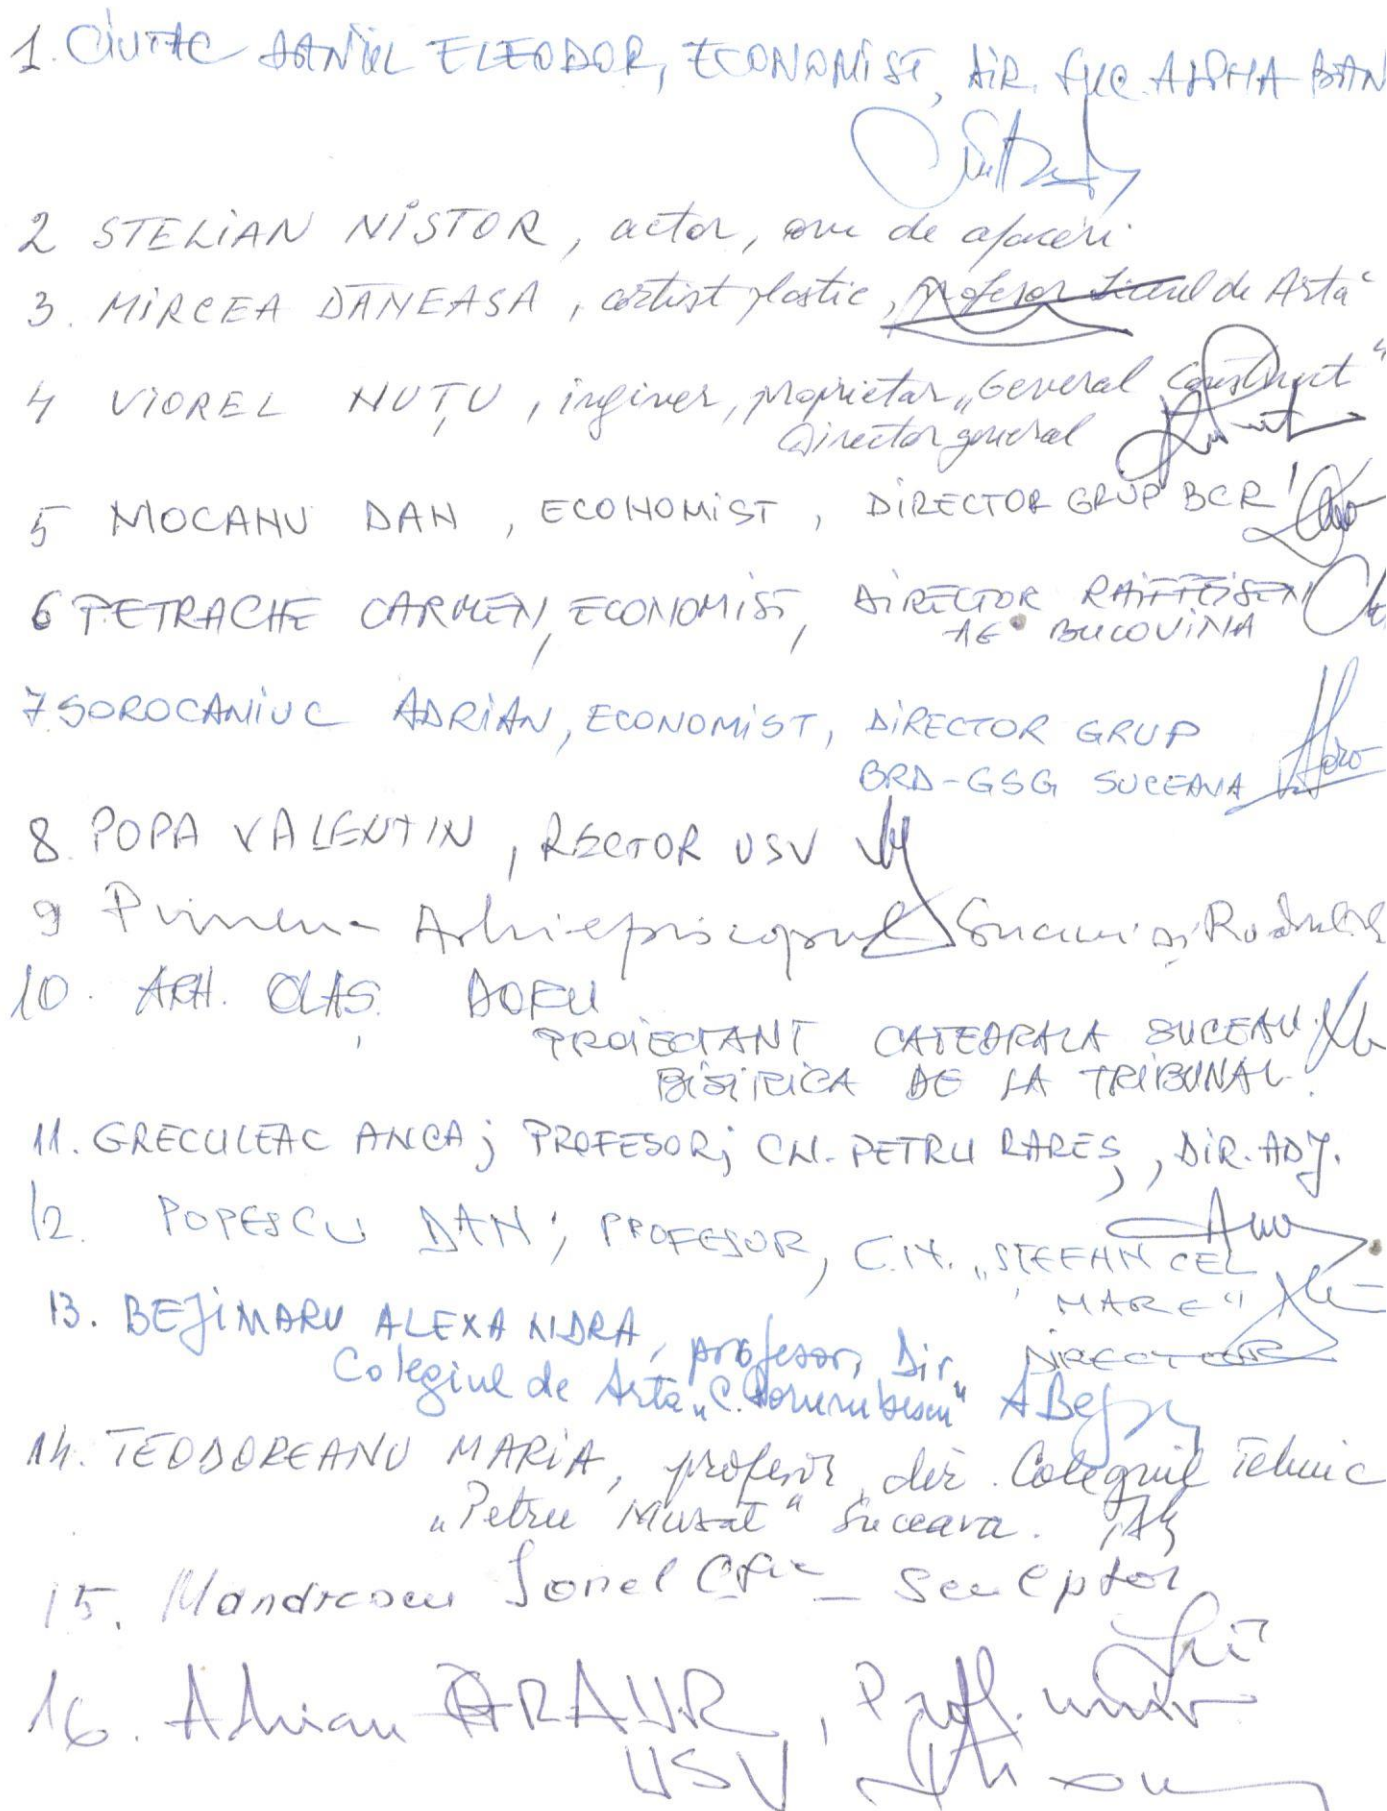 1. CIUTAC DANIEL ELEODOR, ECONOMIST, DIR. SUC. ALPHA BAN
2 STELIAN NISTOR, actor, om de afaceri
3. MIRCEA DĂNEASA, artist plastic, profesor Liceul de Artă
4 VIOREL NUȚU, inginer, proprietar „General Construct"
Director general
5 MOCANU DAN, ECONOMIST, DIRECTOR GRUP BCR
6 PETRACHE CARMEN, ECONOMIST, DIRECTOR RAIFFEISEN
AG BUCOVINA
7 SOROCANIUC ADRIAN, ECONOMIST, DIRECTOR GRUP
BRD-GSG SUCEAVA
8. POPA VALENTIN, RECTOR USV
9 Pimen Arhiepiscopul Sucevei și Rădăuților
10. ARH. OLAȘ
PROIECTANT CATEDRALA SUCEAVA
BISERICA DE LA TRIBUNAL.
11. GRECULEAC ANCA; PROFESOR; CN. PETRU RAREȘ, DIR. ADJ.
12. POPESCU DAN, PROFESOR, C.N. „ȘTEFAN CEL
MARE"
DIRECTOR
13. BEJINARU ALEXANDRA, profesor, Dir.
Colegiul de Artă „C. Porumbescu" ABej
14. TEODOREANU MARIA, profesor, dir. Colegiul Tehnic
„Petru Mușat" Suceava.
15. Mandrescu Ionel - Sculptor
16. Adrian GRAUR, Prof. univ
USV